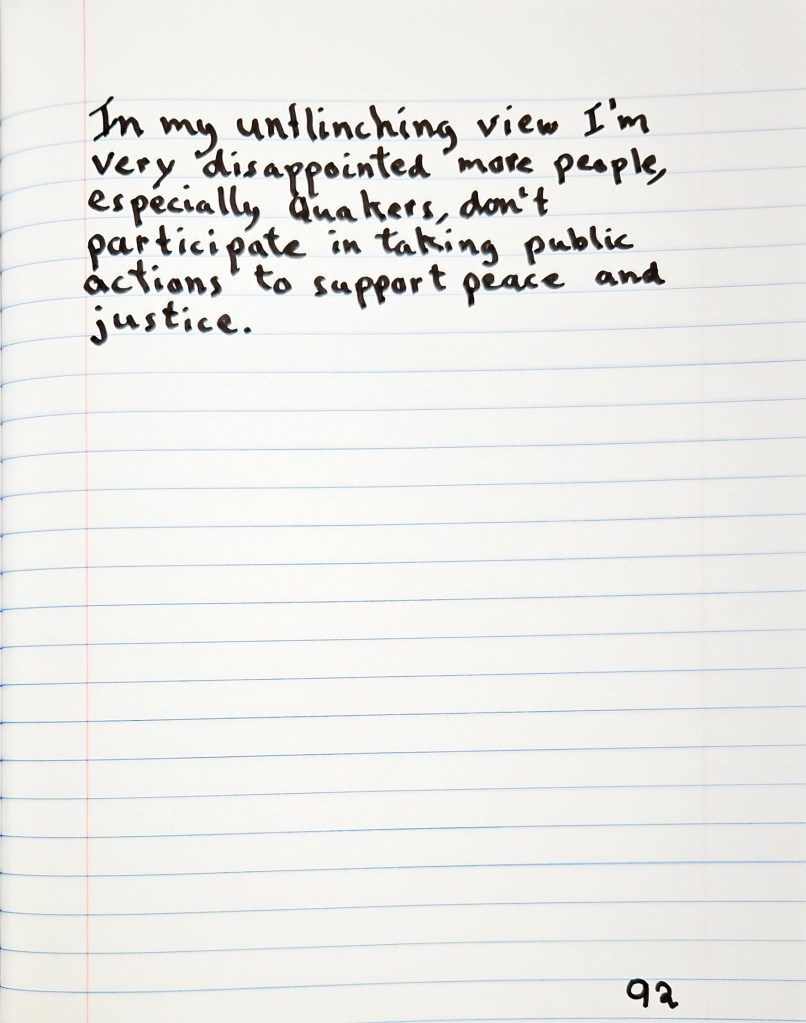 In my unflinching view I'm
very disappointed more people,
especially Quakers, don't
participate in taking public
actions to support peace and
justice.
92